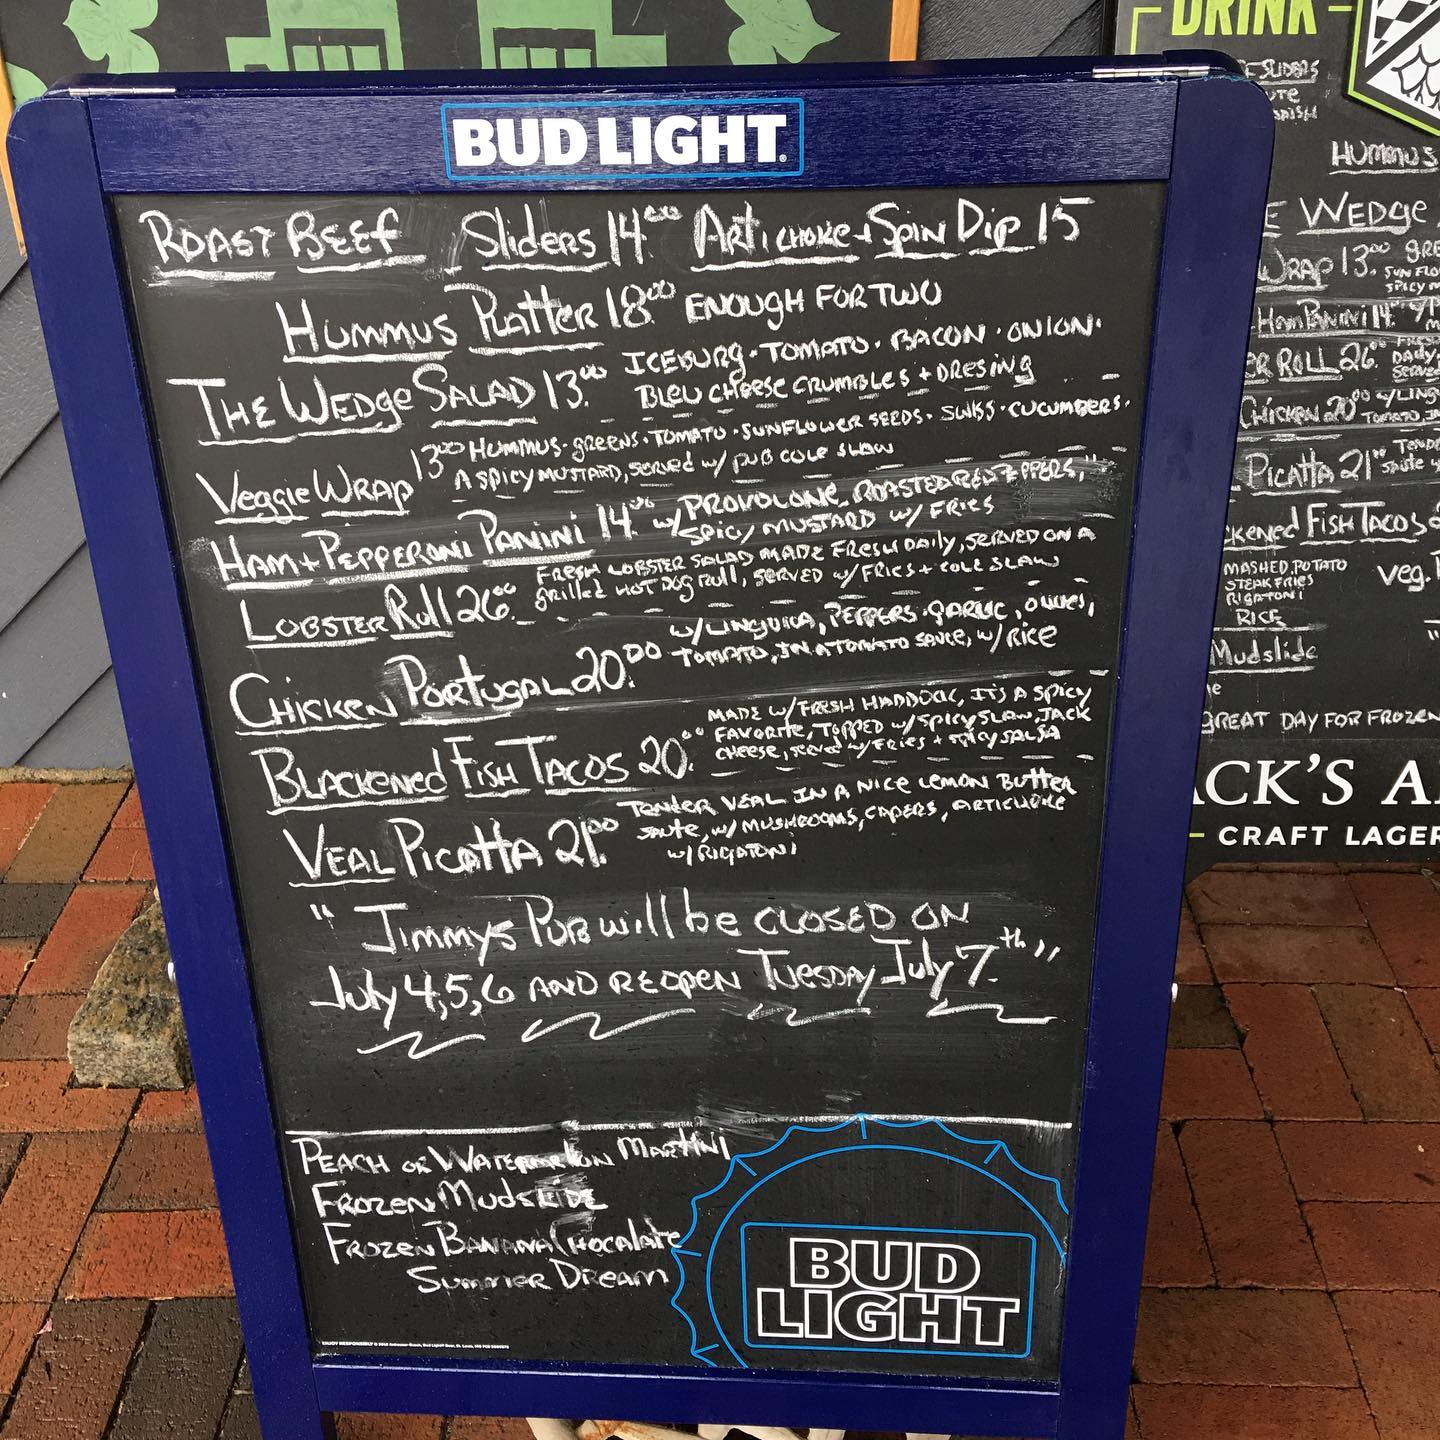 BUD LIGHT
ROAST BEEF SLIDERS 14.00 ARTICHOKE + SPIN DIP 15
HUMMUS PLATTER 18.00 ENOUGH FOR TWO
THE WEDGE SALAD 13.00 ICEBURG · TOMATO · BACON · ONION ·
BLEU CHEESE CRUMBLES + DRESING
VEGGIE WRAP 13.00 HUMMUS · GREENS · TOMATO · SUNFLOWER SEEDS · SWISS · CUCUMBERS ·
A SPICY MUSTARD, SERVED W/ PUB COLE SLAW
HAM + PEPPERONI PANINI 14.00 W/ PROVOLONE, ROASTED RED PEPPERS,
SPICY MUSTARD W/ FRIES
LOBSTER ROLL 26.00 FRESH LOBSTER SALAD MADE FRESH DAILY, SERVED ON A
GRILLED HOT DOG ROLL, SERVED W/ FRIES + COLE SLAW
CHICKEN PORTUGAL 20.00 W/ LINGUICA, PEPPERS · GARLIC, OLIVES,
TOMATO, IN A TOMATO SAUCE, W/ RICE
BLACKENED FISH TACOS 20.00 MADE W/ FRESH HADDOCK, IT'S A SPICY
FAVORITE, TOPPED W/ SPICY SLAW, JACK
CHEESE, SERVED W/ FRIES + SPICY SALSA
VEAL PICATTA 21.00 TENDER VEAL IN A NICE LEMON BUTTER
SAUTE, W/ MUSHROOMS, CAPERS, ARTICHOKE
W/ RIGATONI
"JIMMYS PUB will be CLOSED ON
JULY 4,5,6 AND REOPEN TUESDAY JULY 7th"
PEACH OR WATERMELON MARTINI
FROZEN MUDSLIDE
FROZEN BANANA CHOCALATE
SUMMER DREAM
BUD
LIGHT
DRINK
SLIDERS
HUMMUS
WEDGE
WRAP 13.00
HAM PANINI 14
ROLL 26.00
CHICKEN 20.00 W/ LING
PICATTA 21
FISH TACOS
MASHED POTATO
STEAK FRIES
RIGATONI
RICE
VEG.
MUDSLIDE
GREAT DAY FOR FROZEN
CK'S A
CRAFT LAGER